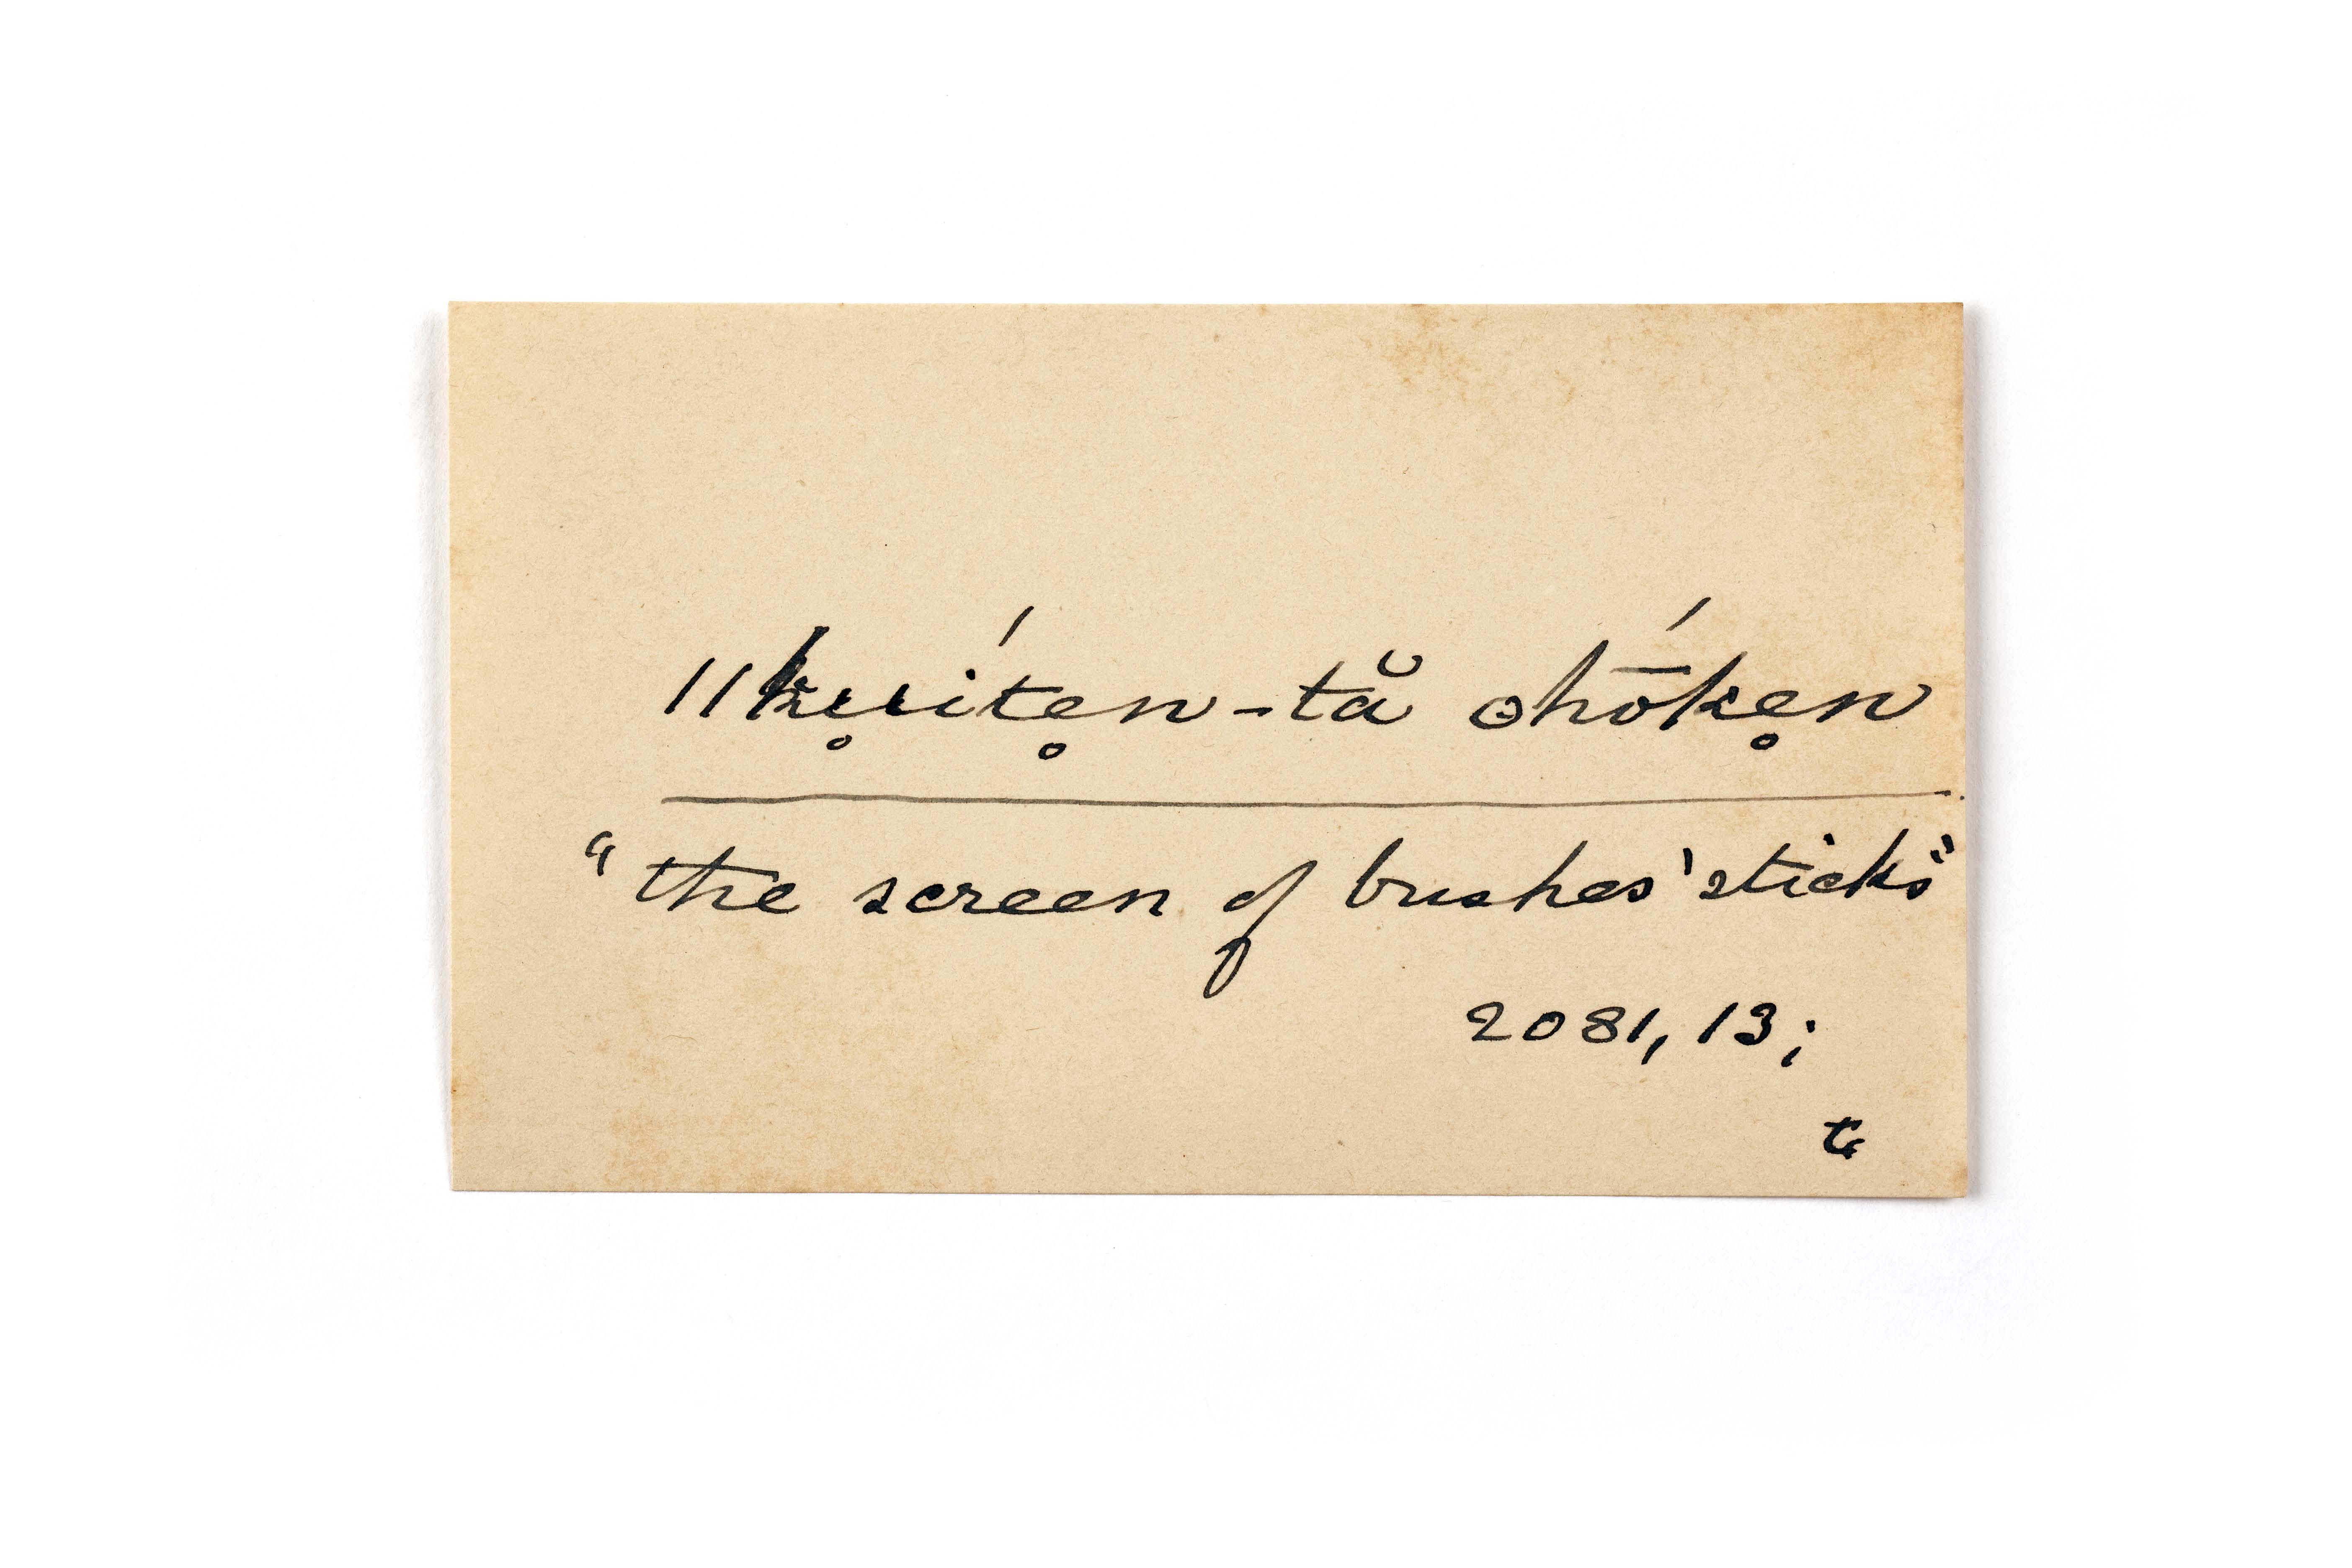 ǁku̥itḙ́n-tă ohṓke̥n
"the screen of bushes' sticks"
2081, 13;